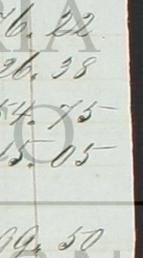 76. 22
26. 38
54. 75
15. 05
09. 50